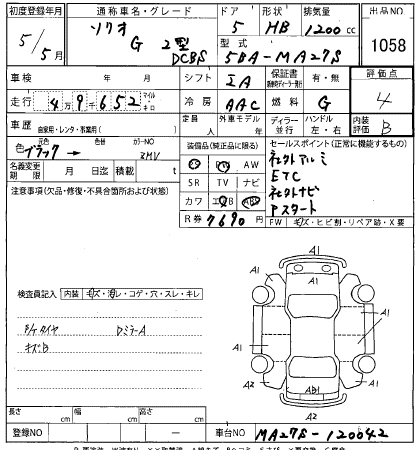 初度登録年月 通称車名・グレード ドア 形状 排気量 出品NO
5/5月 ソリオ G 2型 DCBS 5 HB 1200cc 1058
型式 5BA-MA27S
車検 年 月 シフト IA 保証書 有・無 評価点
走行 4万9千652 マイル キロ 冷房 AAC 燃料 G 4
車歴 自家用・レンタ・事業用( ) 定員 人 外車モデル 年 ディーラー 並行 ハンドル 左・右 内装評価 B
色 元色 ブラック → 色替 カラーNO ZMV
装備品(純正品に限る) セールスポイント(正常に機能するもの)
名義変更期限 月 日迄 積載 t
PS PW AW
SR TV ナビ
カワ エアB ABS
R券 7690円
ネクストアルミ
ETC
ネクストナビ
Pスタート
注意事項(欠品・修復・不具合箇所および状態)
FW キズ・ヒビ割・リペア跡・X要
検査員記入 内装 キズ・汚レ・コゲ・穴・スレ・キレ
タイヤ DミラーA
キズB
A1
A1 A1
A1 A1
A1 A1
A2 AB1 A2
A2
長さ cm 幅 cm 高さ cm
登録NO — 車台NO MA27S-120042